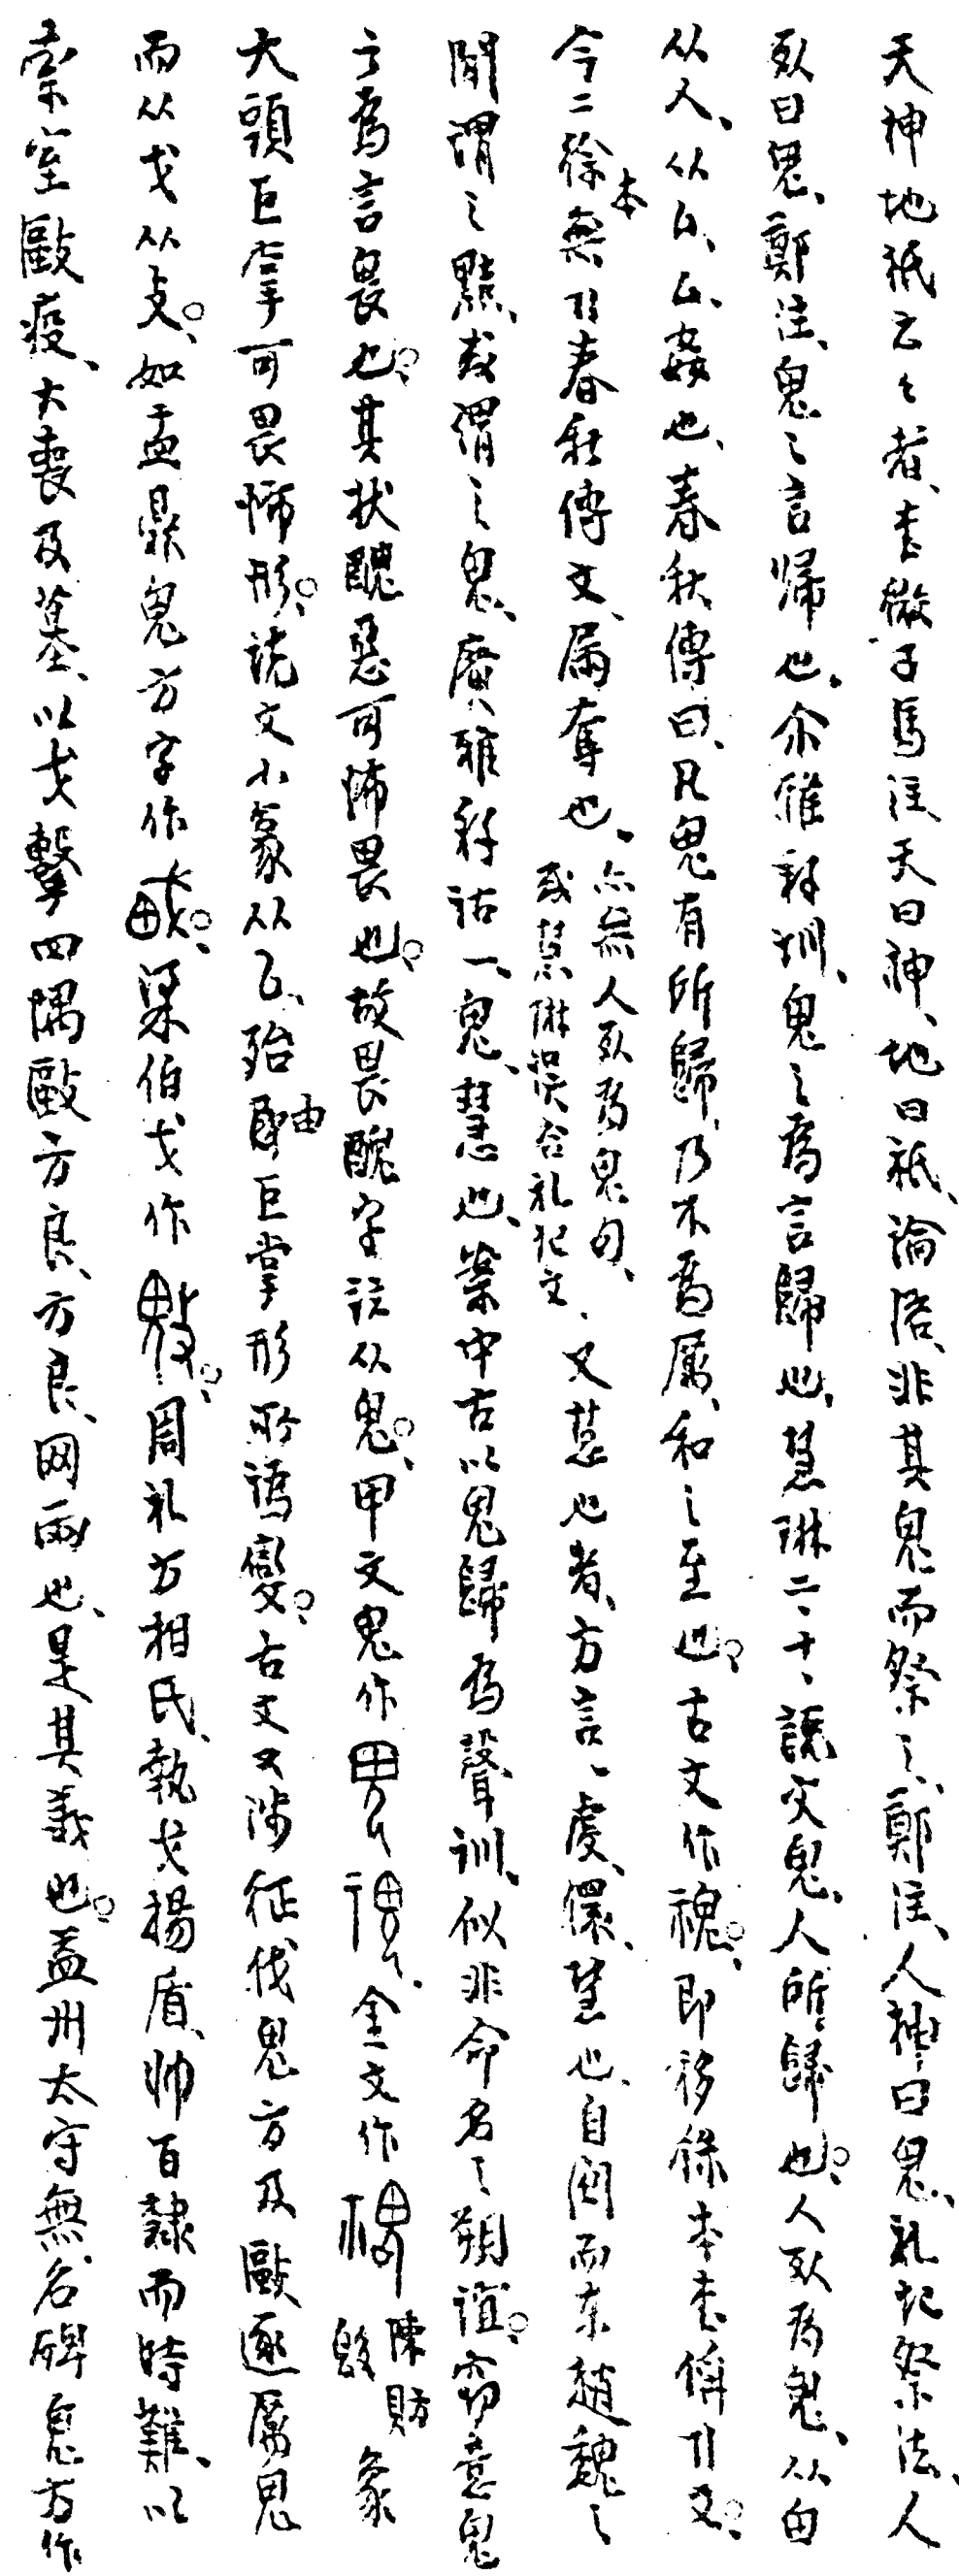 天神地祇云々者、書微子馬注、天曰神、地曰祇、論語、非其鬼而祭之、鄭注、人神曰鬼、礼記祭法、人
死曰鬼、鄭注、鬼之言帰也、尒雅釈訓、鬼之為言歸也、慧琳二、十、説文鬼、人所歸也、人死為鬼、从由
从人、从厶、厶姦也、春秋傳曰、凡鬼有所歸、乃不為厲、和之至也、古文作䰠、即移録本書偁引文、
今二徐本無引春秋傳文、屬奪也、亦無人死為鬼句、或慧琳誤合礼記文、又慧也者、方言一、虔、儇、慧也、自関而東趙魏之
間謂之黠、或謂之鬼、廣雅釈詁一、鬼、慧也、案中古以鬼歸為聲訓、似非命名之朔誼、窃意鬼
之為言畏也、其状醜惡可怖畏也、故畏醜字竝从鬼、甲文鬼作 金文作 陳財𣪘 象
大頭巨拿可畏怖形、説文小篆从厶、殆即由巨掌形所譌變、古文又渉征伐鬼方及毆逐厲鬼
而从戈从攴、如盂鼎鬼方字作 梁伯戈作 周礼方相氏、執戈揚盾、帥百隸而時難、以
索室毆疫、大喪及墓、以戈擊四隅毆方良、方良、网兩也、是其義也、益州太守無名碑鬼方作